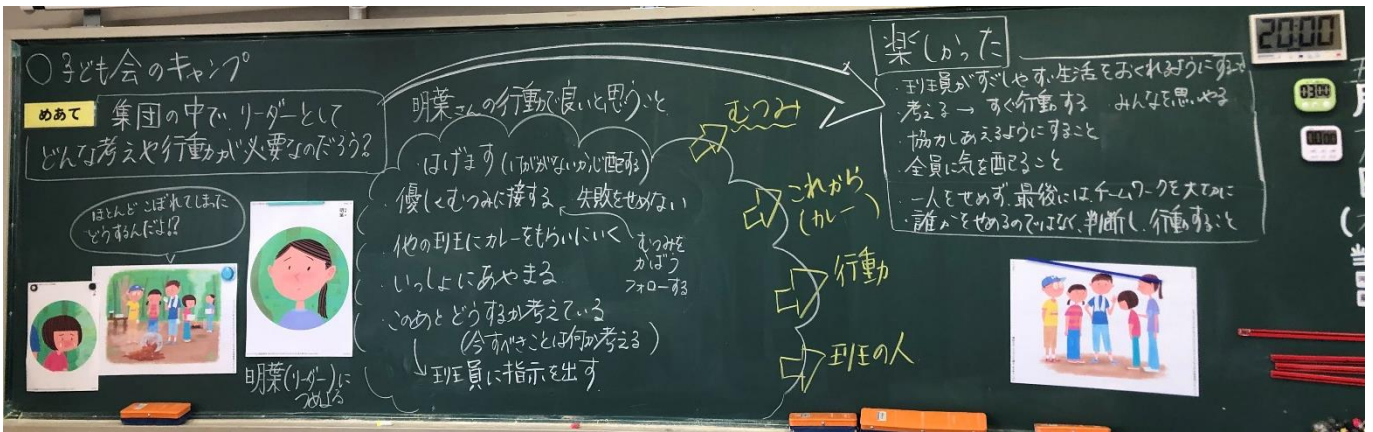 ○子ども会のキャンプ
めあて
集団の中で、リーダーとして
どんな考えや行動が必要なのだろう?
ほとんどこぼれてしまった
どうするんだよ!?
明葉(リーダー)に
つめよる
明葉さんの行動で良いと思うこと
・はげます(いがないか心配する)
・優しくむつみに接する 失敗をせめない
・他の班にカレーをもらいにいく
むつみを
かばう
フォローする
・いっしょにあやまる
・このあとどうするか考えている
(今すべきことは何か考える)
班員に指示を出す
むつみ
これから
(カレー)
行動
班の人
楽しかった
・班員がすごしやすい生活をおくれるようにすること
・考える→すぐ行動する みんなを思いやる
・協力しあえるようにすること
・全員に気を配ること
・一人をせめず、最後にはチームワークを大切に
・誰かをせめるのではなく、判断し、行動すること
20:00
03:00